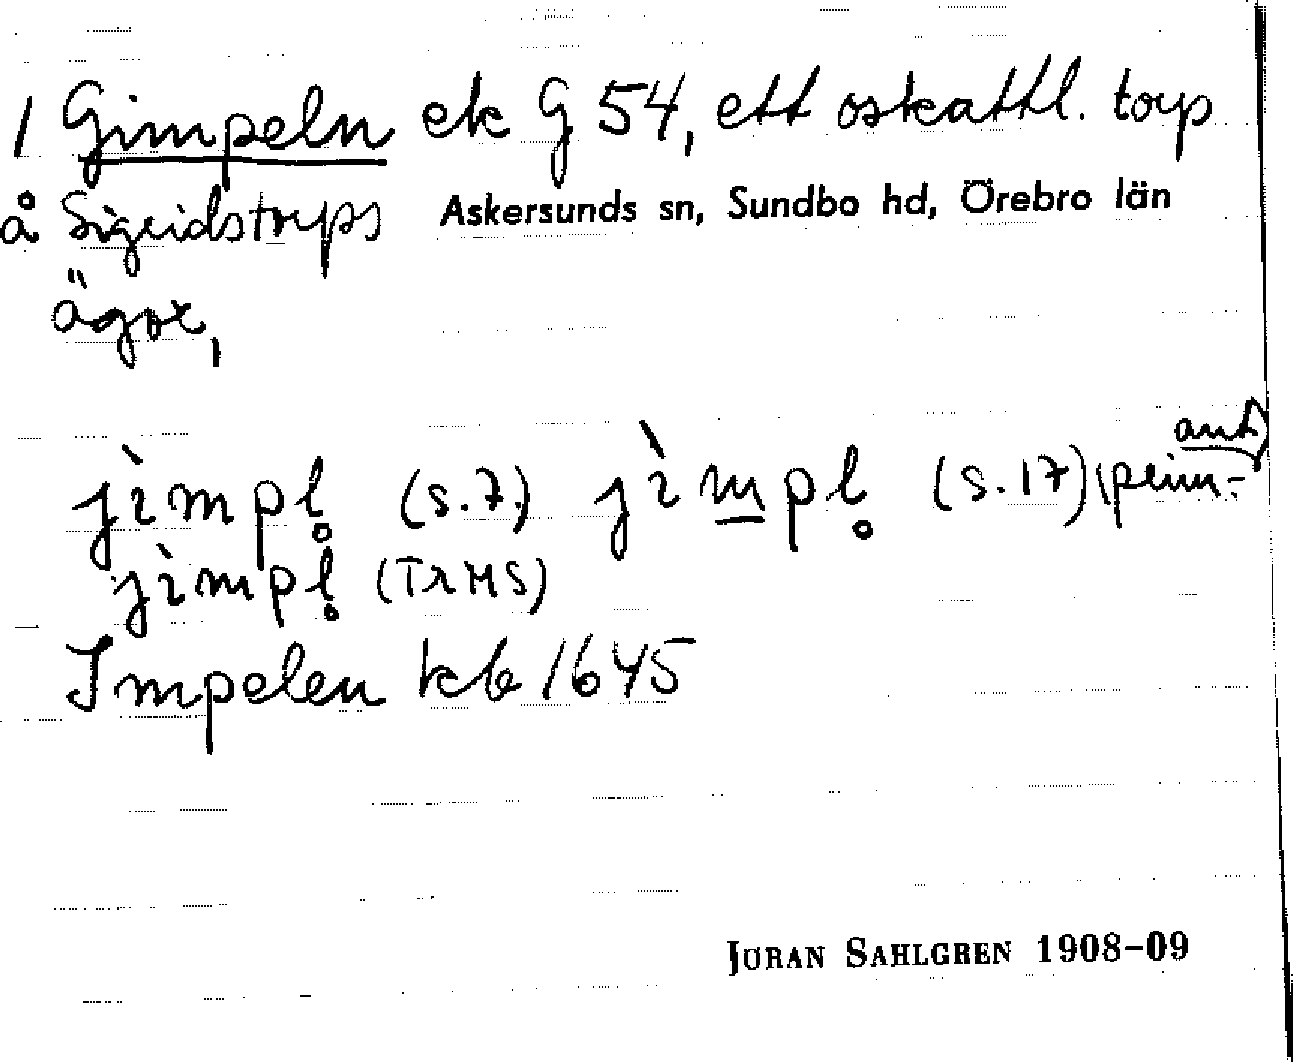 1 Gimpeln ek G 54, ett oskattl. torp
å Sigridstorps Askersunds sn, Sundbo hd, Örebro län
ägor,
jìmpl̥ (s.7) jìmpl̥ (s.17) prim-
ant
jìmpl̥ (TrMS)
Impelen kb 1645
JÖRAN SAHLGREN 1908–09